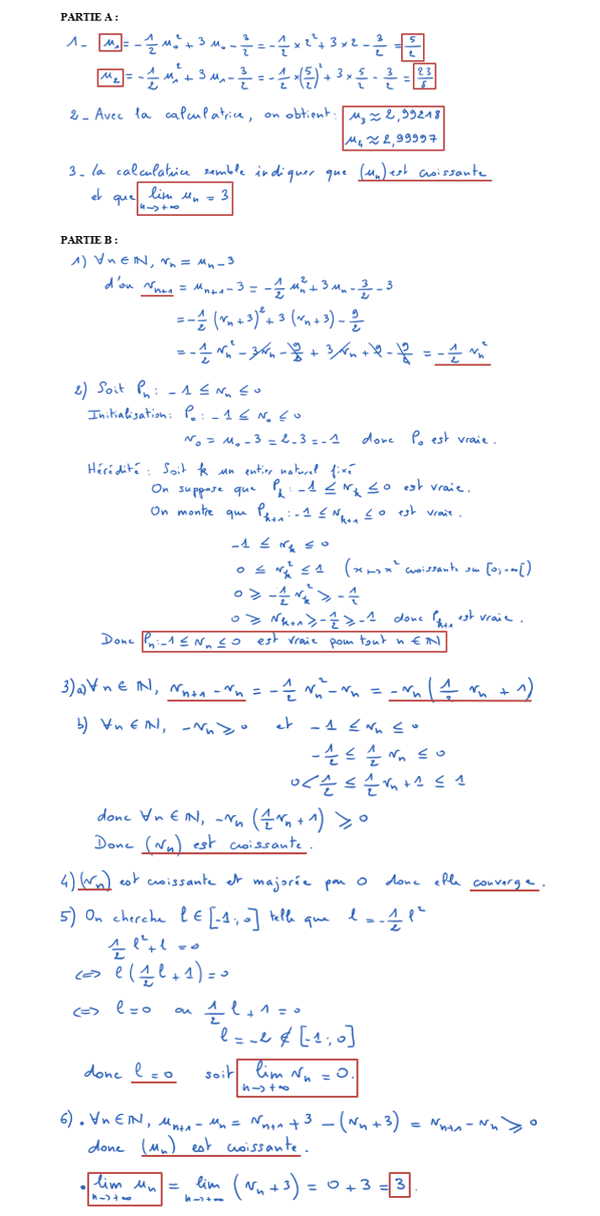 PARTIE A :
1- u₁ = -1/2 u₀² + 3 u₀ - 3/2 = -1/2 × 2² + 3 × 2 - 3/2 = 5/2
u₂ = -1/2 u₁² + 3 u₁ - 3/2 = -1/2 × (5/2)² + 3 × 5/2 - 3/2 = 23/8
2 - Avec la calculatrice, on obtient : u₃ ≈ 2,99218
u₄ ≈ 2,99997
3 - la calculatrice semble indiquer que (uₙ) est croissante
et que lim uₙ = 3
n→+∞
PARTIE B :
1) ∀n ∈ ℕ, vₙ = uₙ - 3
d'où vₙ₊₁ = uₙ₊₁ - 3 = -1/2 uₙ² + 3 uₙ - 3/2 - 3
= -1/2 (vₙ + 3)² + 3 (vₙ + 3) - 9/2
= -1/2 vₙ² - 3vₙ - 9/2 + 3vₙ + 9 - 9/2 = -1/2 vₙ²
2) Soit Pₙ : -1 ≤ vₙ ≤ 0
Initialisation : P₀ : -1 ≤ v₀ ≤ 0
v₀ = u₀ - 3 = 2 - 3 = -1 donc P₀ est vraie.
Hérédité : Soit k un entier naturel fixé
On suppose que Pₖ : -1 ≤ vₖ ≤ 0 est vraie.
On montre que Pₖ₊₁ : -1 ≤ vₖ₊₁ ≤ 0 est vraie.
-1 ≤ vₖ ≤ 0
0 ≤ vₖ² ≤ 1 (x ↦ x² croissante sur [0;+∞[)
0 ≥ -1/2 vₖ² ≥ -1/2
0 ≥ vₖ₊₁ ≥ -1/2 ≥ -1 donc Pₖ₊₁ est vraie.
Donc Pₙ : -1 ≤ vₙ ≤ 0 est vraie pour tout n ∈ ℕ
3) a) ∀n ∈ ℕ, vₙ₊₁ - vₙ = -1/2 vₙ² - vₙ = -vₙ (1/2 vₙ + 1)
b) ∀n ∈ ℕ, -vₙ ≥ 0 et -1 ≤ vₙ ≤ 0
-1/2 ≤ 1/2 vₙ ≤ 0
0 < 1/2 ≤ 1/2 vₙ + 1 ≤ 1
donc ∀n ∈ ℕ, -vₙ (1/2 vₙ + 1) ≥ 0
Donc (vₙ) est croissante.
4) (vₙ) est croissante et majorée par 0 donc elle converge.
5) On cherche l ∈ [-1;0] telle que l = -1/2 l²
1/2 l² + l = 0
⟺ l (1/2 l + 1) = 0
⟺ l = 0 ou 1/2 l + 1 = 0
l = -2 ∉ [-1;0]
donc l = 0 soit lim vₙ = 0.
n→+∞
6) • ∀n ∈ ℕ, uₙ₊₁ - uₙ = vₙ₊₁ + 3 - (vₙ + 3) = vₙ₊₁ - vₙ ≥ 0
donc (uₙ) est croissante.
• lim uₙ = lim (vₙ + 3) = 0 + 3 = 3.
n→+∞ n→+∞